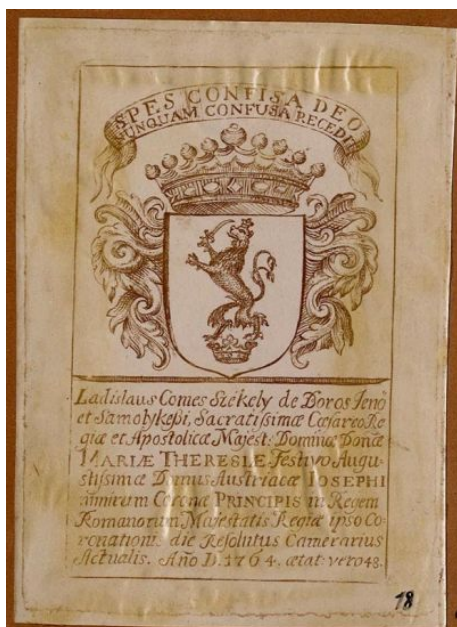 SPES CONFISA DEO
NUNQUAM CONFUSA RECEDIT
Ladislaus Comes Székely de Boros Jenö
et Samolykepi, Sacratissimæ CæsareoRe
giæ et Apostolicæ Majest: Dominæ Donæ
MARIÆ THERESIÆ Festivo Augu-
stissimæ Domus Austriacæ IOSEPHI
nimirum Coronæ PRINCIPIS in Regem
Romanorum Majestatis Regiæ ipso Co-
ronationis die Resolutus Camerarius
Actualis. Año D. 1764. ætat: vero 48.
18